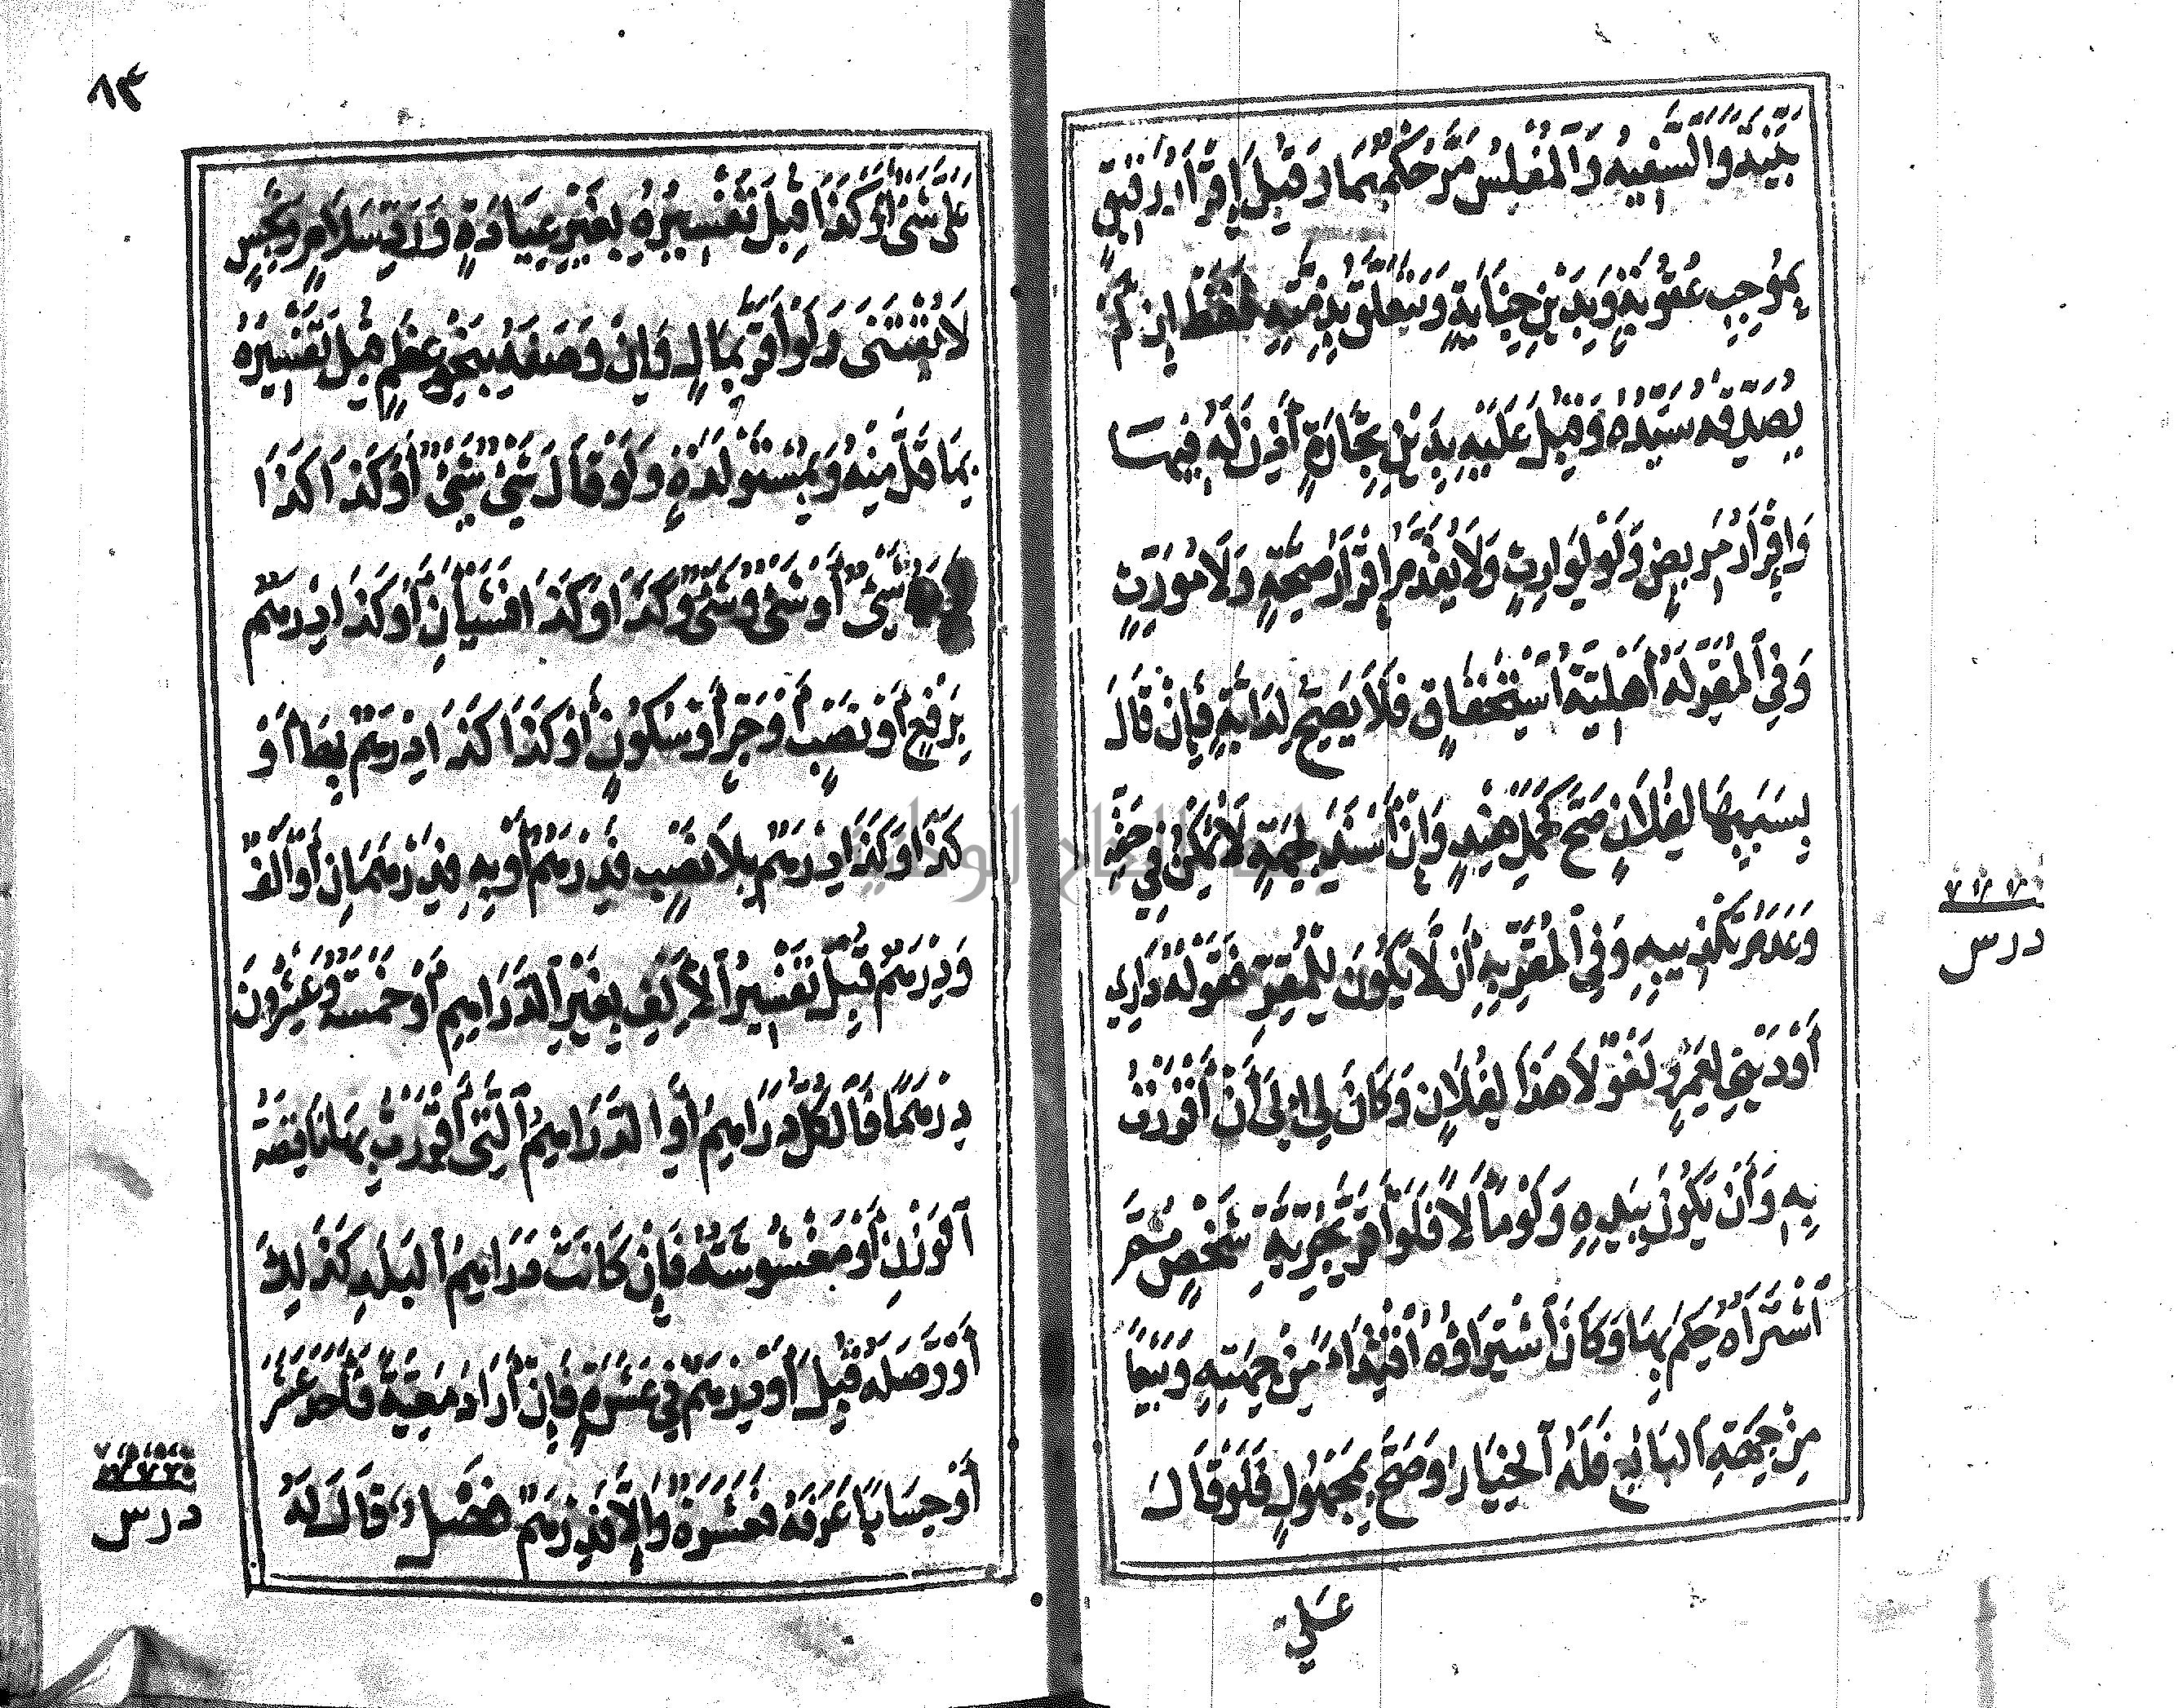 بِيَمِينِهِ وَالسَّفِيهُ وَالْمُفْلِسُ مَرَّ حُكْمُهُمَا وَقُبِلَ إِقْرَارُ رَقِيقٍ
بِمُوجِبِ عُقُوبَةٍ وَبِدَيْنِ جِنَايَةٍ وَيَتَعَلَّقُ بِذِمَّتِهِ فَقَطْ إِنْ لَمْ
يُصَدِّقْهُ سَيِّدُهُ وَقُبِلَ عَلَيْهِ بِدَيْنِ تِجَارَةٍ أُذِنَ لَهُ فِيهَا
وَإِقْرَارُ مَرِيضٍ وَلَوْ لِوَارِثٍ وَلَا يُقَدَّمُ إِقْرَارُ صِحَّةٍ وَلَا مُوَرِّثٍ
وَفِي الْمُقَرِّ لَهُ أَهْلِيَّةُ اسْتِحْقَاقٍ فَلَا يَصِحُّ لِدَابَّةٍ فَإِنْ قَالَ
بِسَبَبِهَا لِفُلَانٍ صَحَّ كَحَمْلِ هِنْدٍ وَإِنْ أَسْنَدَ لِجِهَةٍ لَا تُمْكِنُ فِي حَقِّهِ
وَعَدَمُ تَكْذِيبِهِ وَفِي الْمُقَرِّ بِهِ أَنْ لَا يَكُونَ لِلْمُقِرِّ فَقَوْلُهُ دَارِي
أَوْ دَيْنِي لِعَمْرٍو لَغْوٌ لَا هَذَا لِفُلَانٍ وَكَانَ لِي إِلَى أَنْ أَقْرَرْتُ
بِهِ وَأَنْ يَكُونَ بِيَدِهِ وَلَوْ مَآلًا فَلَوْ أَقَرَّ بِحُرِّيَّةِ شَخْصٍ ثُمَّ
اشْتَرَاهُ حُكِمَ بِهَا وَكَانَ اشْتِرَاؤُهُ افْتِدَاءً مِنْ جِهَتِهِ وَبَيْعًا
مِنْ جِهَةِ الْبَائِعِ فَلَهُ الْخِيَارُ وَصَحَّ بِمَجْهُولٍ فَلَوْ قَالَ
عَلَيَّ
درس
٨٣
عَلَيَّ شَيْءٌ أَوْ كَذَا قُبِلَ تَفْسِيرُهُ بِغَيْرِ عِيَادَةٍ وَرَدِّ سَلَامٍ وَنَجِسٍ
لَا يُقْتَنَى وَلَوْ أَقَرَّ بِمَالٍ وَإِنْ وَصَفَهُ بِنَحْوِ عِظَمٍ قُبِلَ تَفْسِيرُهُ
بِمَا قَلَّ مِنْهُ وَبِمُسْتَوْلَدَةٍ وَلَوْ قَالَ شَيْءٌ شَيْءٌ أَوْ كَذَا كَذَا
شَيْءٌ أَوْ شَيْءٌ وَشَيْءٌ وَكَذَا وَكَذَا فَشَيْآنِ أَوْ كَذَا دِرْهَمٌ
بِرَفْعٍ أَوْ نَصْبٍ أَوْ جَرٍّ أَوْ سُكُونٍ أَوْ كَذَا كَذَا دِرْهَمٌ بِهَا أَوْ
كَذَا وَكَذَا دِرْهَمٌ بِلَا نَصْبٍ فَدِرْهَمٌ أَوْ بِهِ فَدِرْهَمَانِ أَوْ أَلْفٌ
وَدِرْهَمٌ قُبِلَ تَفْسِيرُ الْأَلْفِ بِغَيْرِ الدَّرَاهِمِ أَوْ خَمْسَةٌ وَعِشْرُونَ
دِرْهَمًا فَالْكُلُّ دَرَاهِمُ أَوِ الدَّرَاهِمُ الَّتِي أَقْرَرْتُ بِهَا نَاقِصَةُ
الْوَزْنِ أَوْ مَغْشُوشَةٌ فَإِنْ كَانَتْ دَرَاهِمُ الْبَلَدِ كَذَلِكَ
أَوْ وَصَلَهُ قُبِلَ أَوْ دِرْهَمٌ فِي عَشَرَةٍ فَإِنْ أَرَادَ مَعِيَّةً فَأَحَدَ عَشَرَ
أَوْ حِسَابًا عَرَفَهُ فَعَشَرَةٌ وَإِلَّا فَدِرْهَمٌ فَصْلٌ قَالَ لَهُ
درس